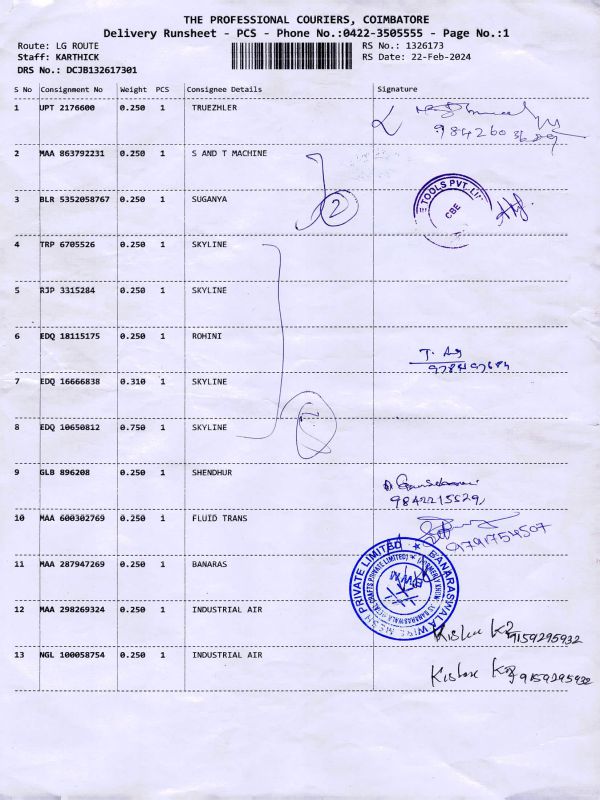 THE PROFESSIONAL COURIERS, COIMBATORE
Delivery Runsheet - PCS - Phone No.:0422-3505555 - Page No.:1
Route: LG ROUTE
Staff: KARTHICK
DRS No.: DCJB132617301
RS No.: 1326173
RS Date: 22-Feb-2024
S No Consignment No Weight PCS Consignee Details Signature
1 UPT 2176600 0.250 1 TRUEZHLER
2 MAA 863792231 0.250 1 S AND T MACHINE
3 BLR 5352058767 0.250 1 SUGANYA
2
E TOOLS PVT. LI
CBE
4 TRP 6705526 0.250 1 SKYLINE
5 RJP 3315284 0.250 1 SKYLINE
6 EDQ 18115175 0.250 1 ROHINI
7 EDQ 16666838 0.310 1 SKYLINE
8 EDQ 10650812 0.750 1 SKYLINE
9 GLB 896208 0.250 1 SHENDHUR
9842215529
10 MAA 600302769 0.250 1 FLUID TRANS
9791754507
11 MAA 287947269 0.250 1 BANARAS
BANARASWALA WIRE MESH PRIVATE LIMITED
12 MAA 298269324 0.250 1 INDUSTRIAL AIR
9159295932
13 NGL 100058754 0.250 1 INDUSTRIAL AIR
9159295932